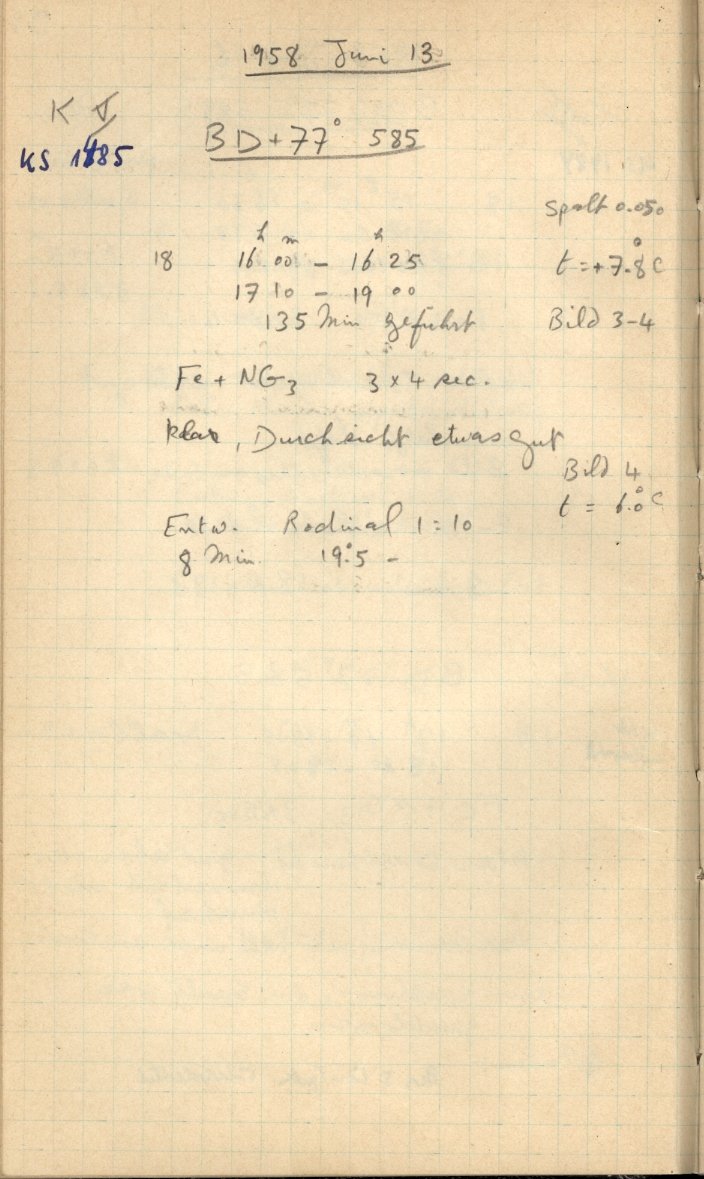 1958 Juni 13
K
KS 1485
BD+77° 585
Spalt 0.050
18 16h 00m – 16h 25 t = +7.8°C
17 10 – 19 00
135 Min geführt Bild 3–4
Fe + NG3 3 x 4 sec.
klar, Durchsicht etwas gut
Bild 4
t = 6.0°C
Entw. Rodinal 1:10
8 Min. 19.°5 –